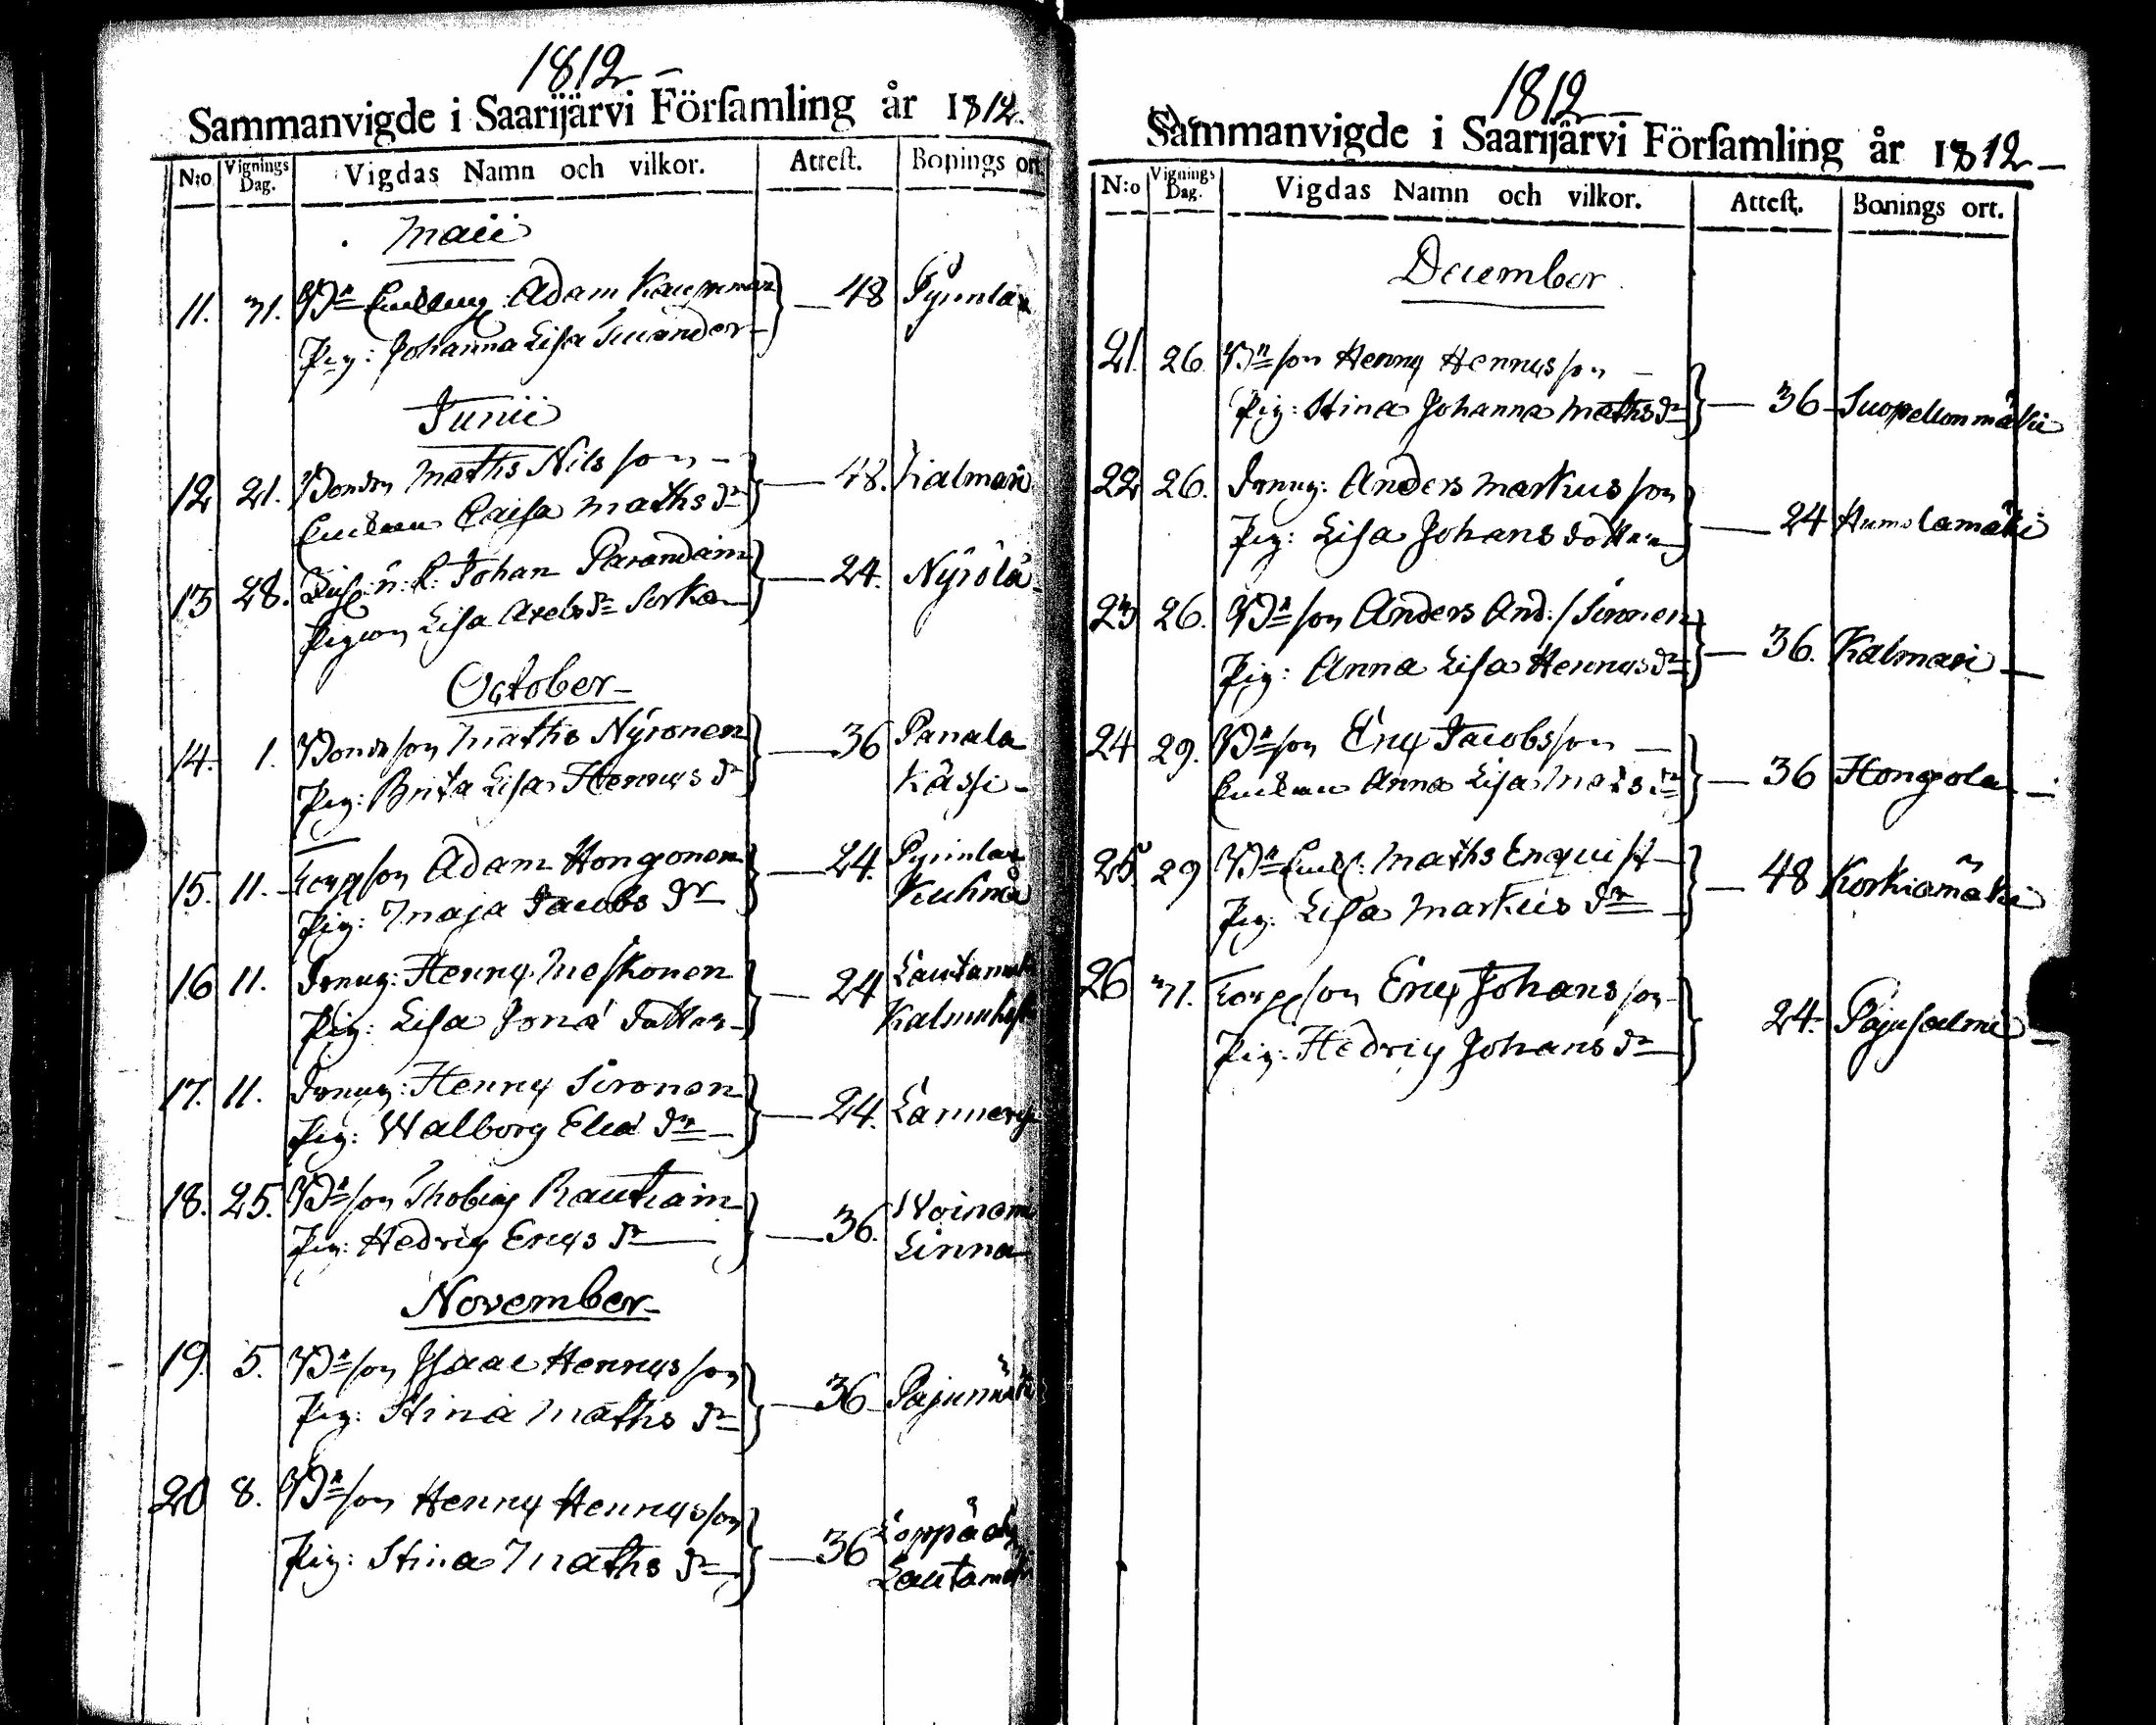 1812
Sammanvigde i Saarijärvi Förſamling år 1812.
N:o Vignings Dag. Vigdas Namn och vilkor. Atteſt. Bonings ort.
Maii
11. 31. Bn Enkling Adam Kaupp 48
Pig: Johanna Lisa
Junii
12 21. Bonden Maths Nilsson 48. Kalmari
Enkan Caisa Maths dr
13 28. Johan Parandain 24. Nyrölä
Pigan Lisa Axels dr
October
14. 1. Bondeson Maths Nyronen 36 Panala
Pig: Brita Lisa Henrics dr Kässi
15. 11. Torpson Adam Hongonen 24.
Pig: Maja Jacobs dr
16 11. Dräng: Henric Meskonen 24
Pig: Lisa Jona dotter
17. 11. Dräng: Henric Sironen 24.
Pig: Walborg Elia dr
18. 25. Bn son Thobias Rautiain 36.
Pig: Hedvig Erics dr Linna
November
19. 5. Bn son Isaac Henricsson 36
Pig: Stina Maths dr
20 8. Bn son Henric Henricsson 36
Pig: Stina Maths dr
1812
Sammanvigde i Saarijärvi Förſamling år 1812
N:o Vignings Dag. Vigdas Namn och vilkor. Atteſt. Bonings ort.
December
21. 26. Bn son Henric Henricsson
Pig: Stina Johanna Maths dr 36
22 26. Dräng: Anders Markusson
Pig: Lisa Johans dotter 24 Humalamäki
23 26. Bn son Anders And:s Sironen
Pig: Anna Lisa Henrics dr 36. Kalmari
24 29. Bn son Eric Jacobsson
Enkan Anna Lisa Mats dr 36 Hongola
25 29 Bn Enkl: Maths Enquist
Pig: Lisa Markus dr 48 Korkiamäki
26 31. Torpson Eric Johansson
Pig: Hedvig Johans dr 24. Pajusalmi